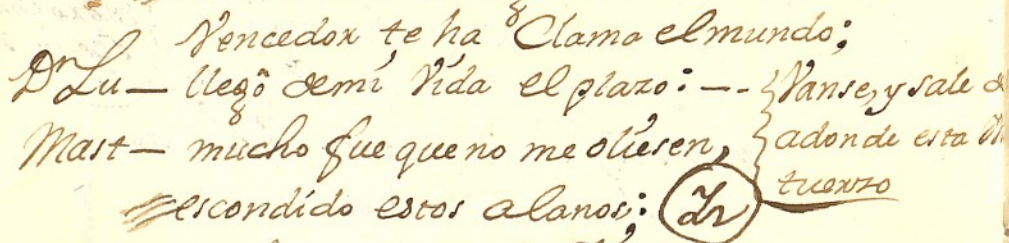 Vencedor te ha Clama el mundo;
Dn Lu— llegô de mi Vida el plazo: -- Vanse, y sale
Mast— mucho fue que no me oliesen, adonde esta
escondido estos alanos: tuerzo